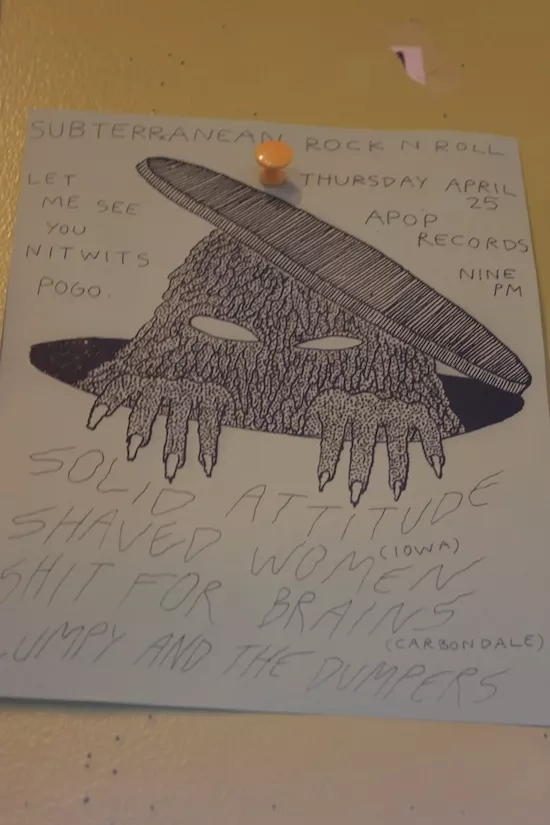 SUBTERRANEAN ROCK N ROLL
LET
ME SEE
YOU
NITWITS
POGO.
THURSDAY APRIL
25
APOP
RECORDS
NINE
PM
SOLID ATTITUDE
(IOWA)
SHAVED WOMEN
SHIT FOR BRAINS
(CARBONDALE)
LUMPY AND THE DUMPERS